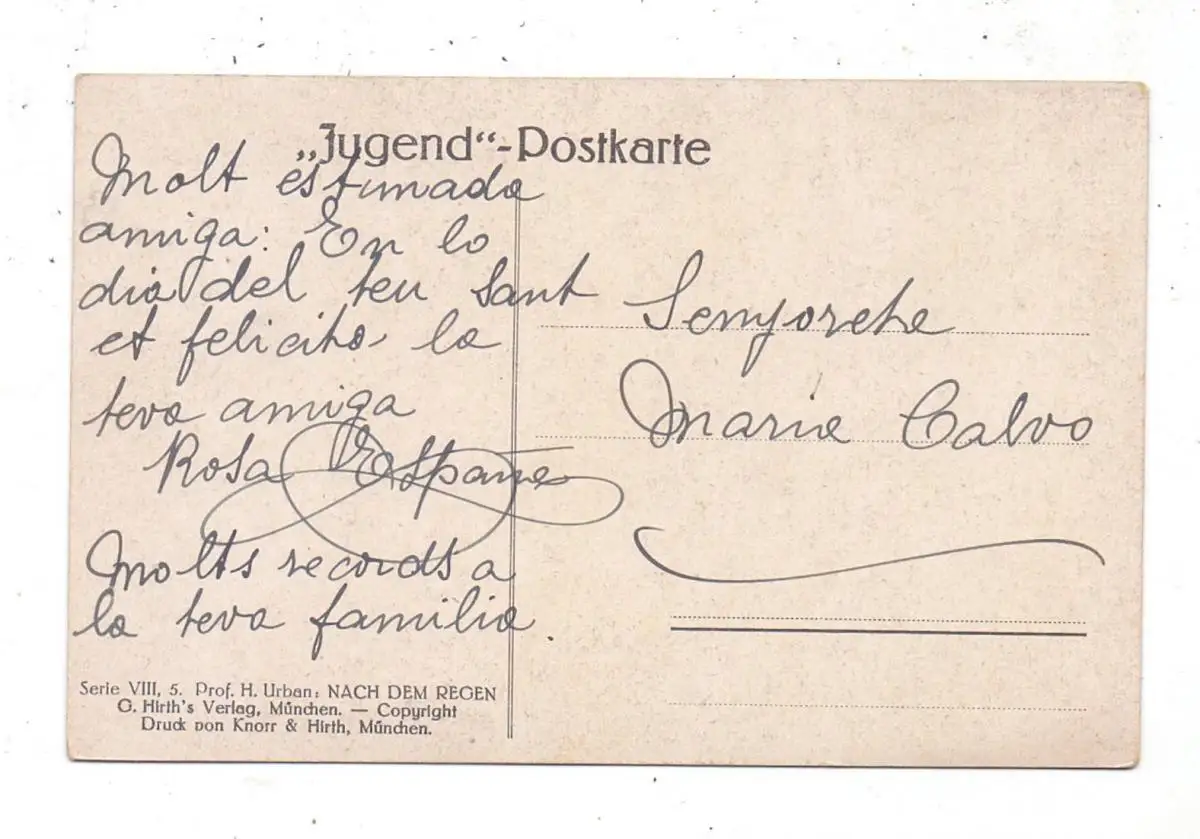 „Jugend“-Postkarte
Molt estimada
amiga: En lo
dia del teu sant
et felicita la
teva amiga
Rosa
Molts records a
la teva familia
Senyoreta
Maria Calvo
Serie VIII, 5. Prof. H. Urban: NACH DEM REGEN
G. Hirth's Verlag, München. — Copyright
Druck von Knorr & Hirth, München.